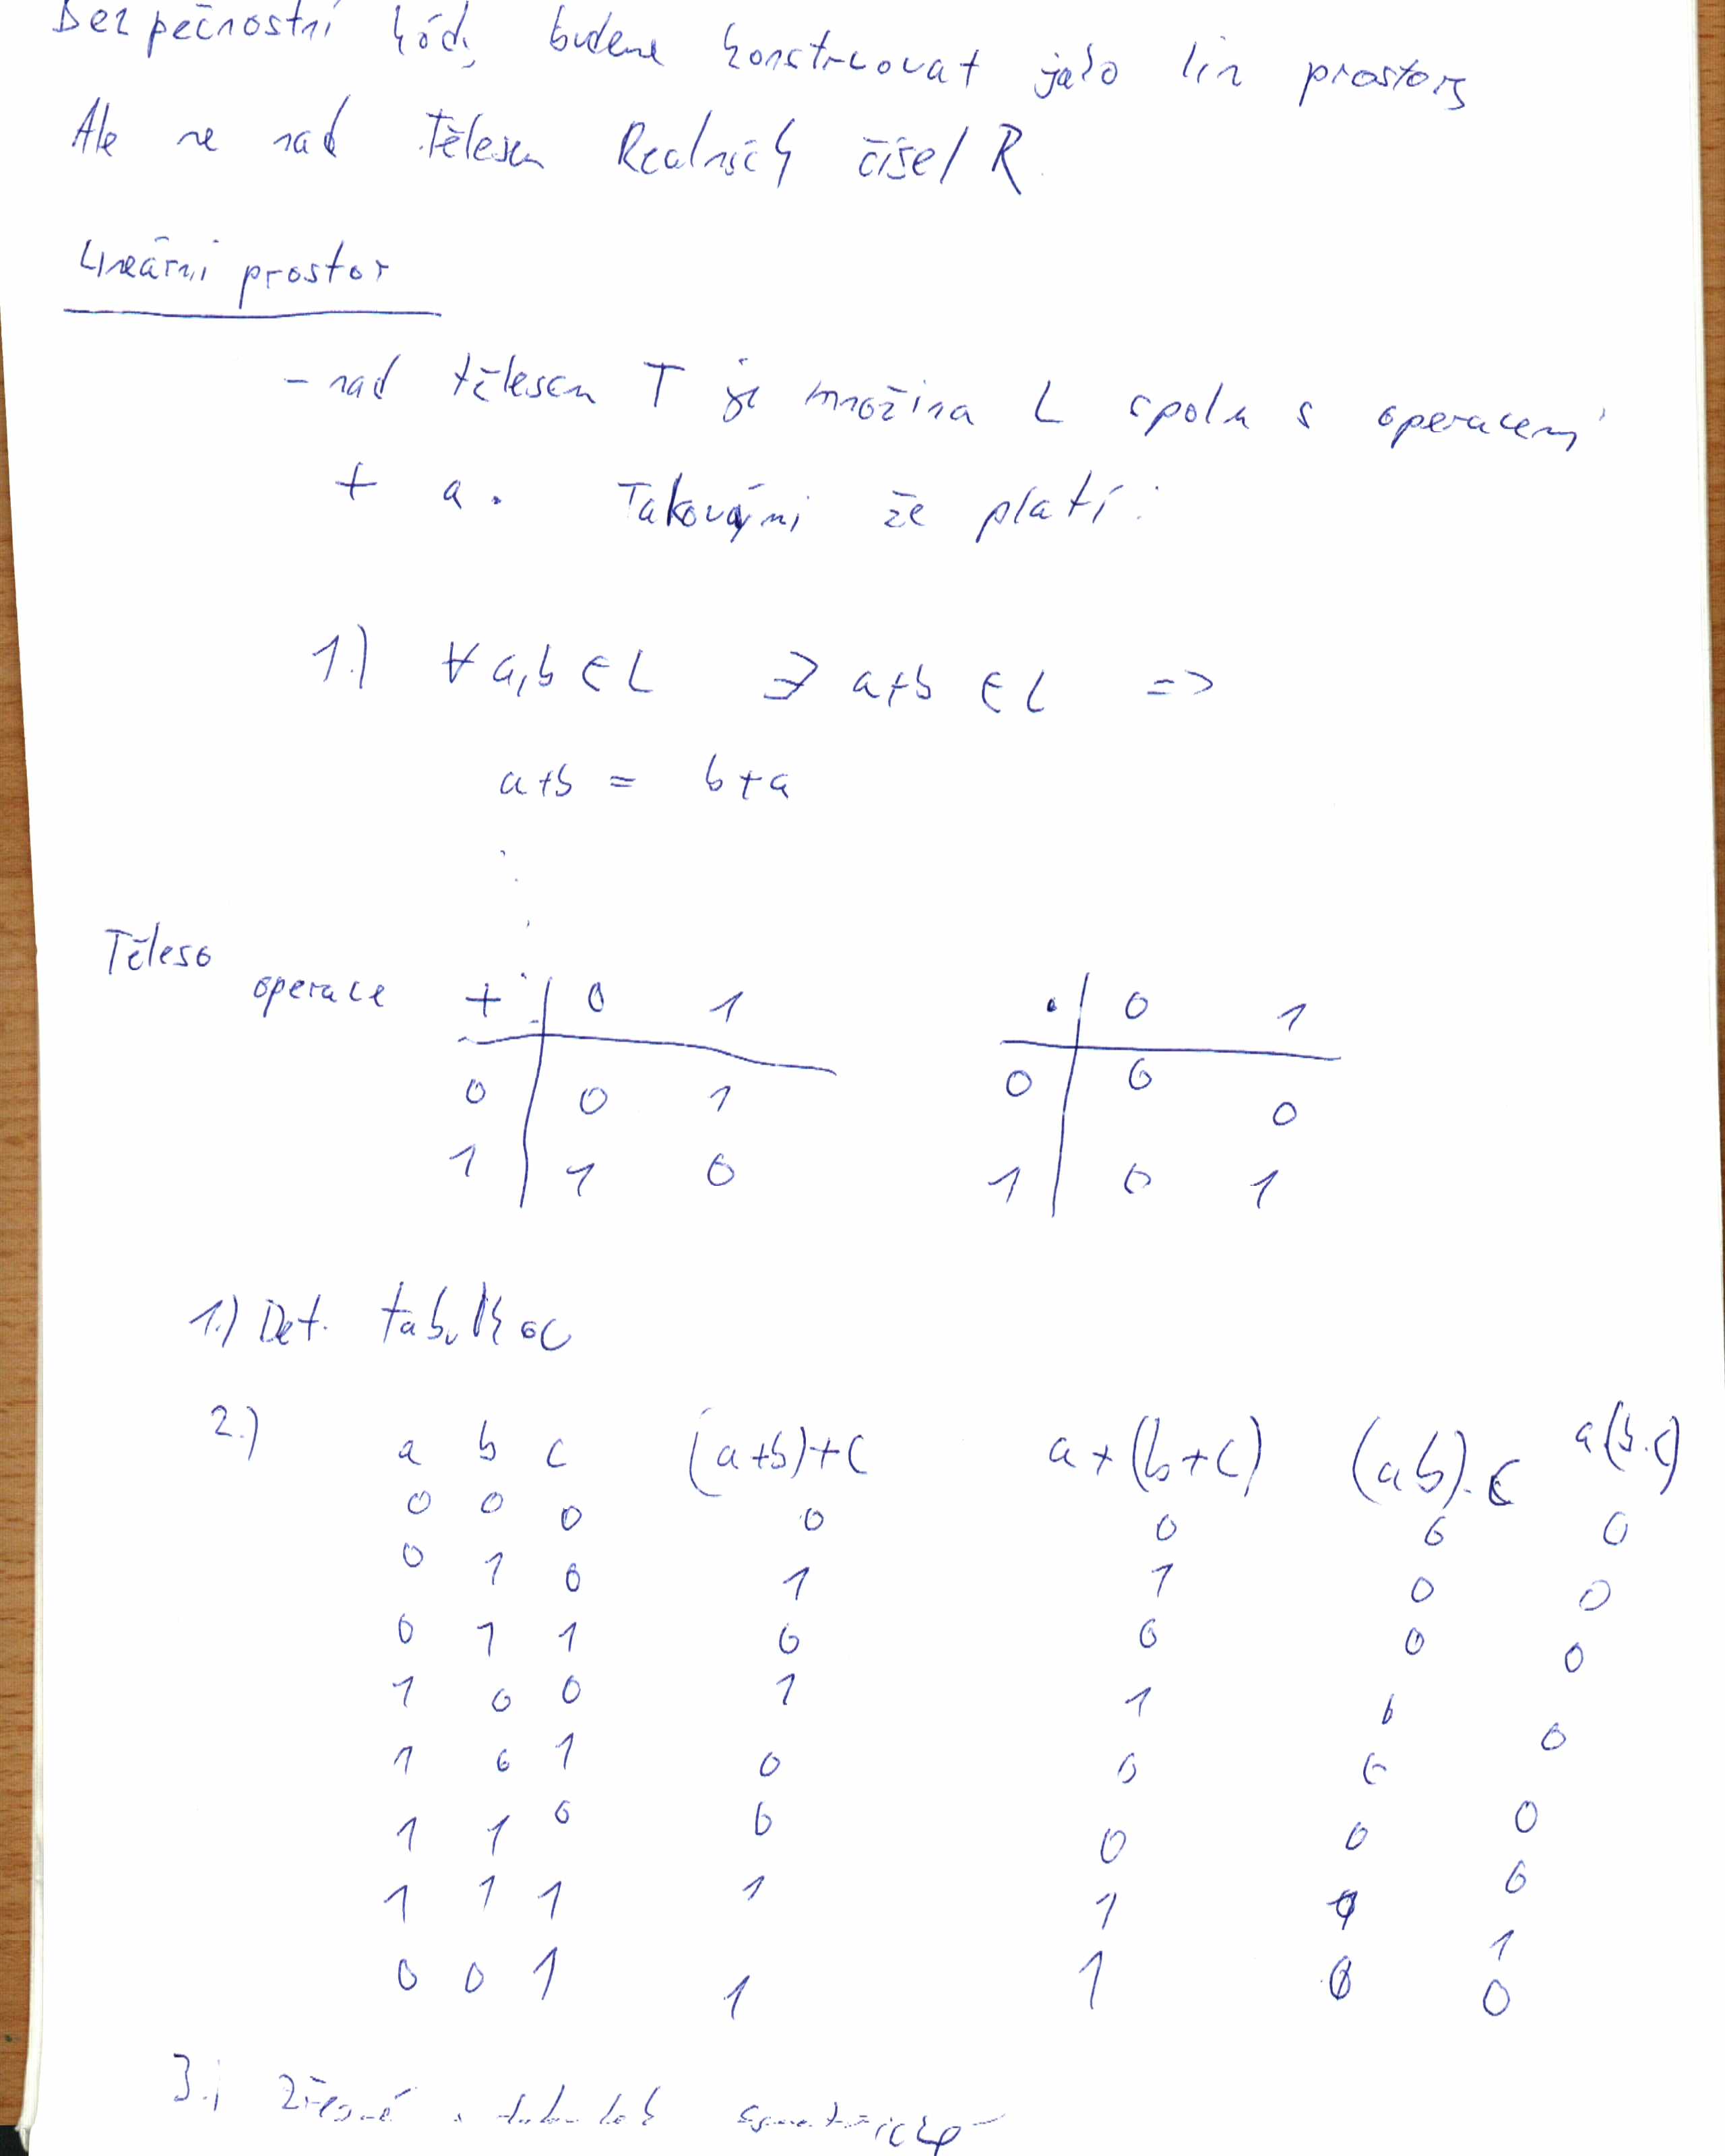 Bezpečnostní kódy budeme konstruovat jako lin prostory
Ale ne nad Tělesem Realných čísel R.
Lineární prostor
- nad tělesem T je množina L spolu s operacemi
+ a . Takovými že platí:
1.) ∀ a,b ∈ L ∃ a+b ∈ L =>
a+b = b+a
Těleso
operace + 0 1 . 0 1
0 0 1 0 0 0
1 1 0 1 0 1
1.) Def. tabulkou
2.) a b c (a+b)+c a+(b+c) (ab).c a(b.c)
0 0 0 0 0 0 0
0 1 0 1 1 0 0
0 1 1 0 0 0 0
1 0 0 1 1 0 0
1 0 1 0 0 0 0
1 1 0 0 0 0 0
1 1 1 1 1 1 1
0 0 1 1 1 0 0
3.) Zřejmé